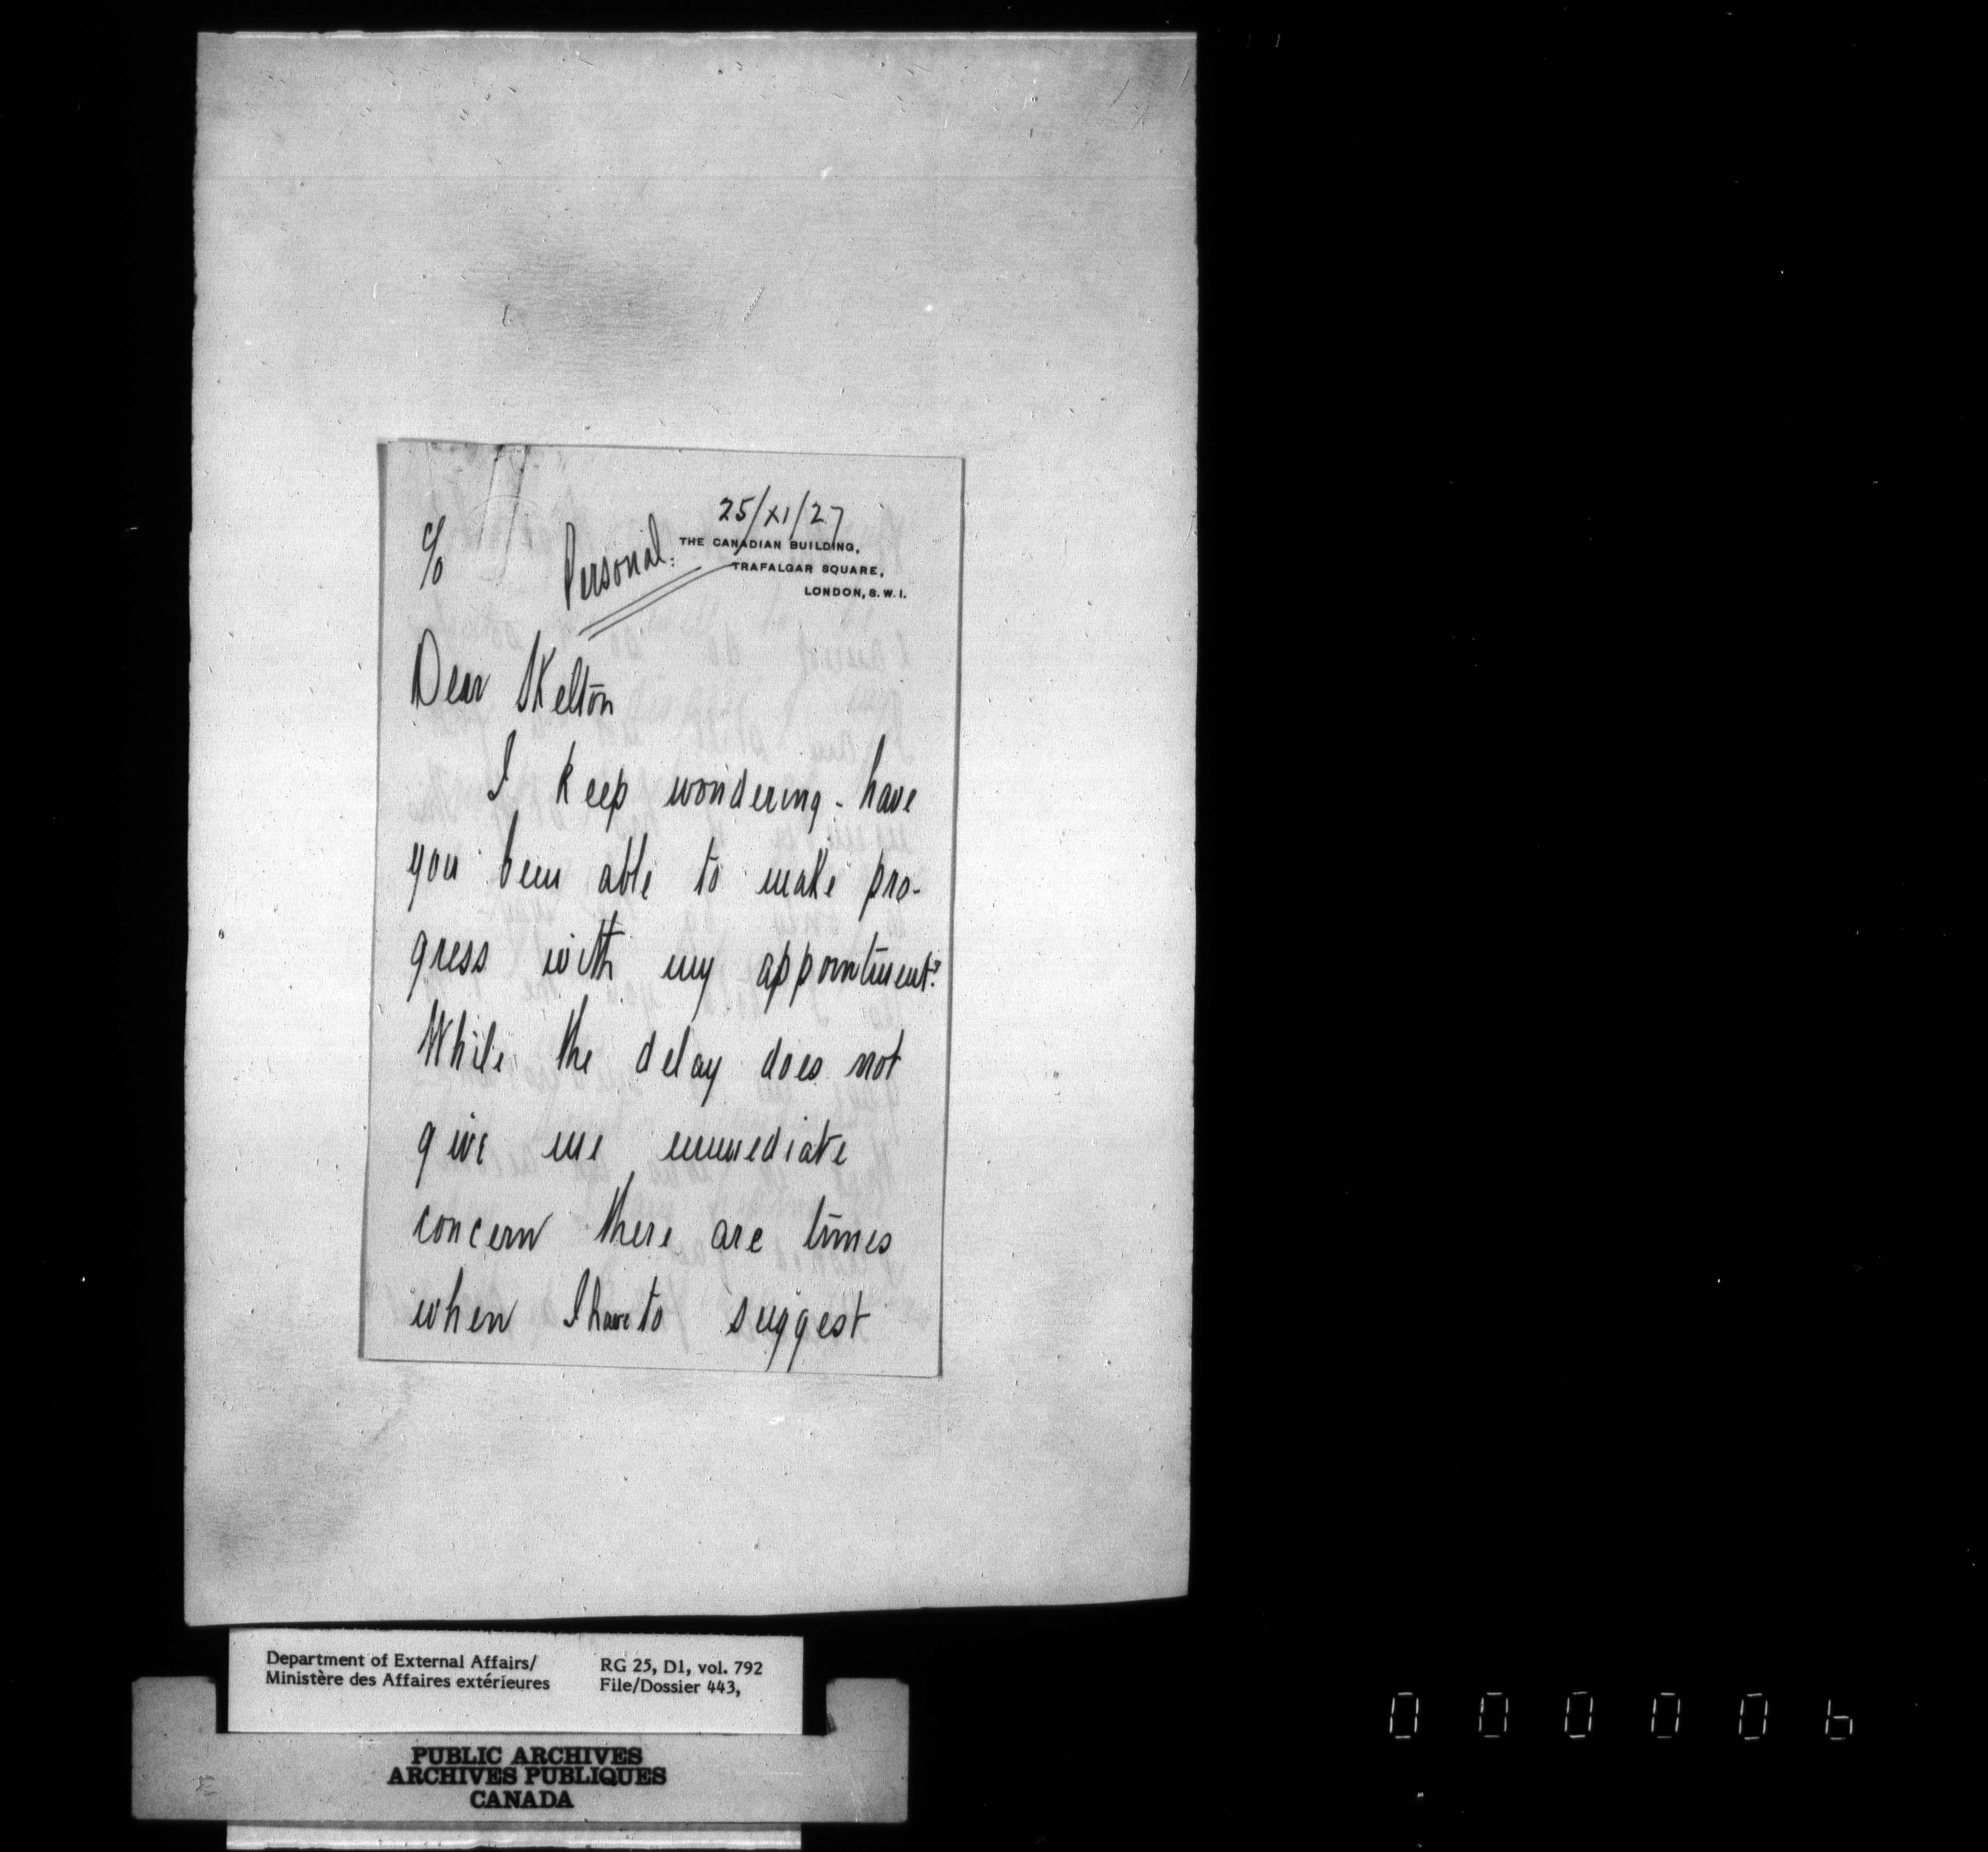 25/XI/27
c/o
Personal.
THE CANADIAN BUILDING,
TRAFALGAR SQUARE,
LONDON, S.W.1.
Dear Skelton
I keep wondering - have
you been able to make pro-
gress with my appointment?
While the delay does not
give me immediate
concern there are times
when I have to suggest
Department of External Affairs/
Ministère des Affaires extérieures
RG 25, D1, vol. 792
File/Dossier 443,
PUBLIC ARCHIVES
ARCHIVES PUBLIQUES
CANADA
000006